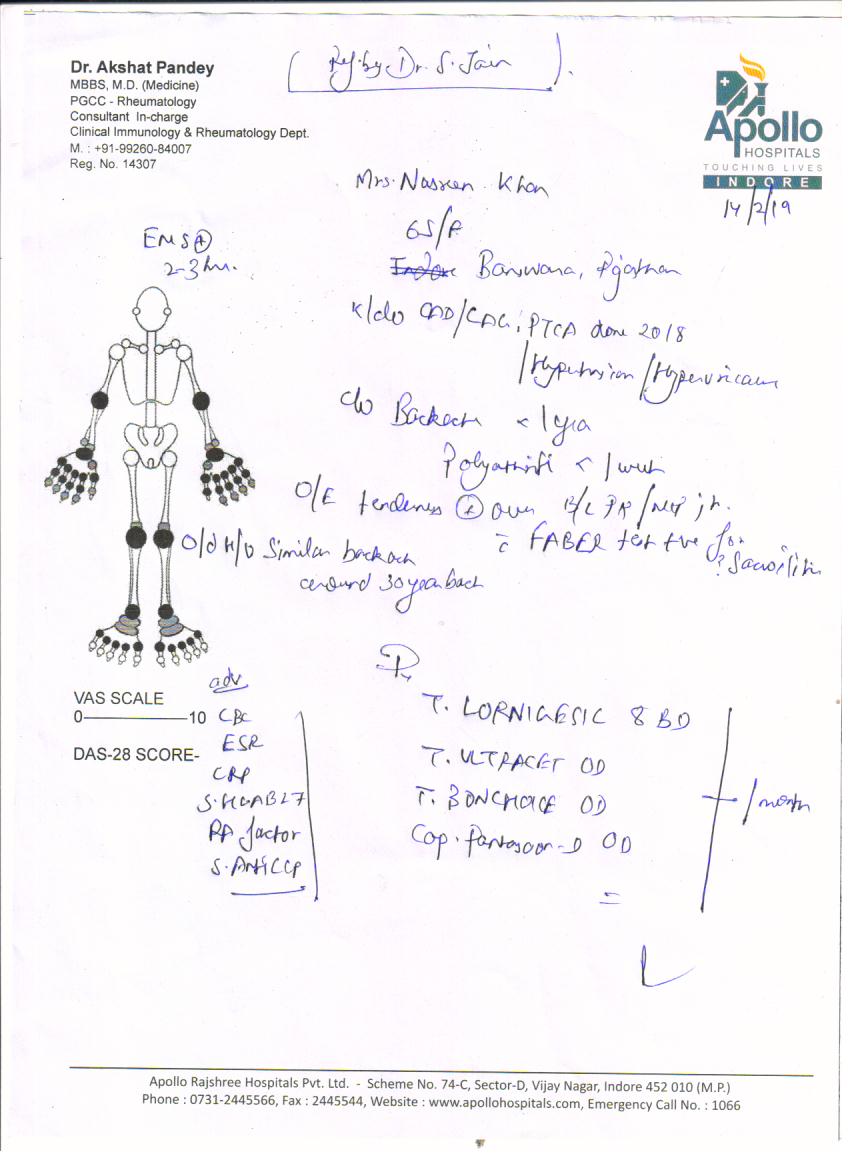 (Ref. by Dr. S. Jain).
Dr. Akshat Pandey
MBBS, M.D. (Medicine)
PGCC - Rheumatology
Consultant In-charge
Clinical Immunology & Rheumatology Dept.
M. : +91-99260-84007
Reg. No. 14307
Apollo
HOSPITALS
TOUCHING LIVES
INDORE
14/2/19
Mrs. Nasreen Khan
65/F
Banswara, Rajasthan
EMS +
2-3 hr.
K/c/o CAD/CAG, PTCA done 2018
/Hypertension /Hyperuricaemia
c/o Backache < 1 year
Polyarthritis < 1 week
O/E tenderness + over B/L jt.
c FABER test +ve for
? Sacroiliitis
O/d H/o Similar backache
around 30 year back
Rx
adv
CBC
ESR
CRP
S. HLAB27
RA factor
S. Anti CCP
T. LORNIGESIC 8 BD
T. ULTRACET OD
T. BONCHOICE OD
Cap. -D OD
1 month
VAS SCALE
0 10
DAS-28 SCORE-
Apollo Rajshree Hospitals Pvt. Ltd. - Scheme No. 74-C, Sector-D, Vijay Nagar, Indore 452 010 (M.P.)
Phone : 0731-2445566, Fax : 2445544, Website : www.apollohospitals.com, Emergency Call No. : 1066